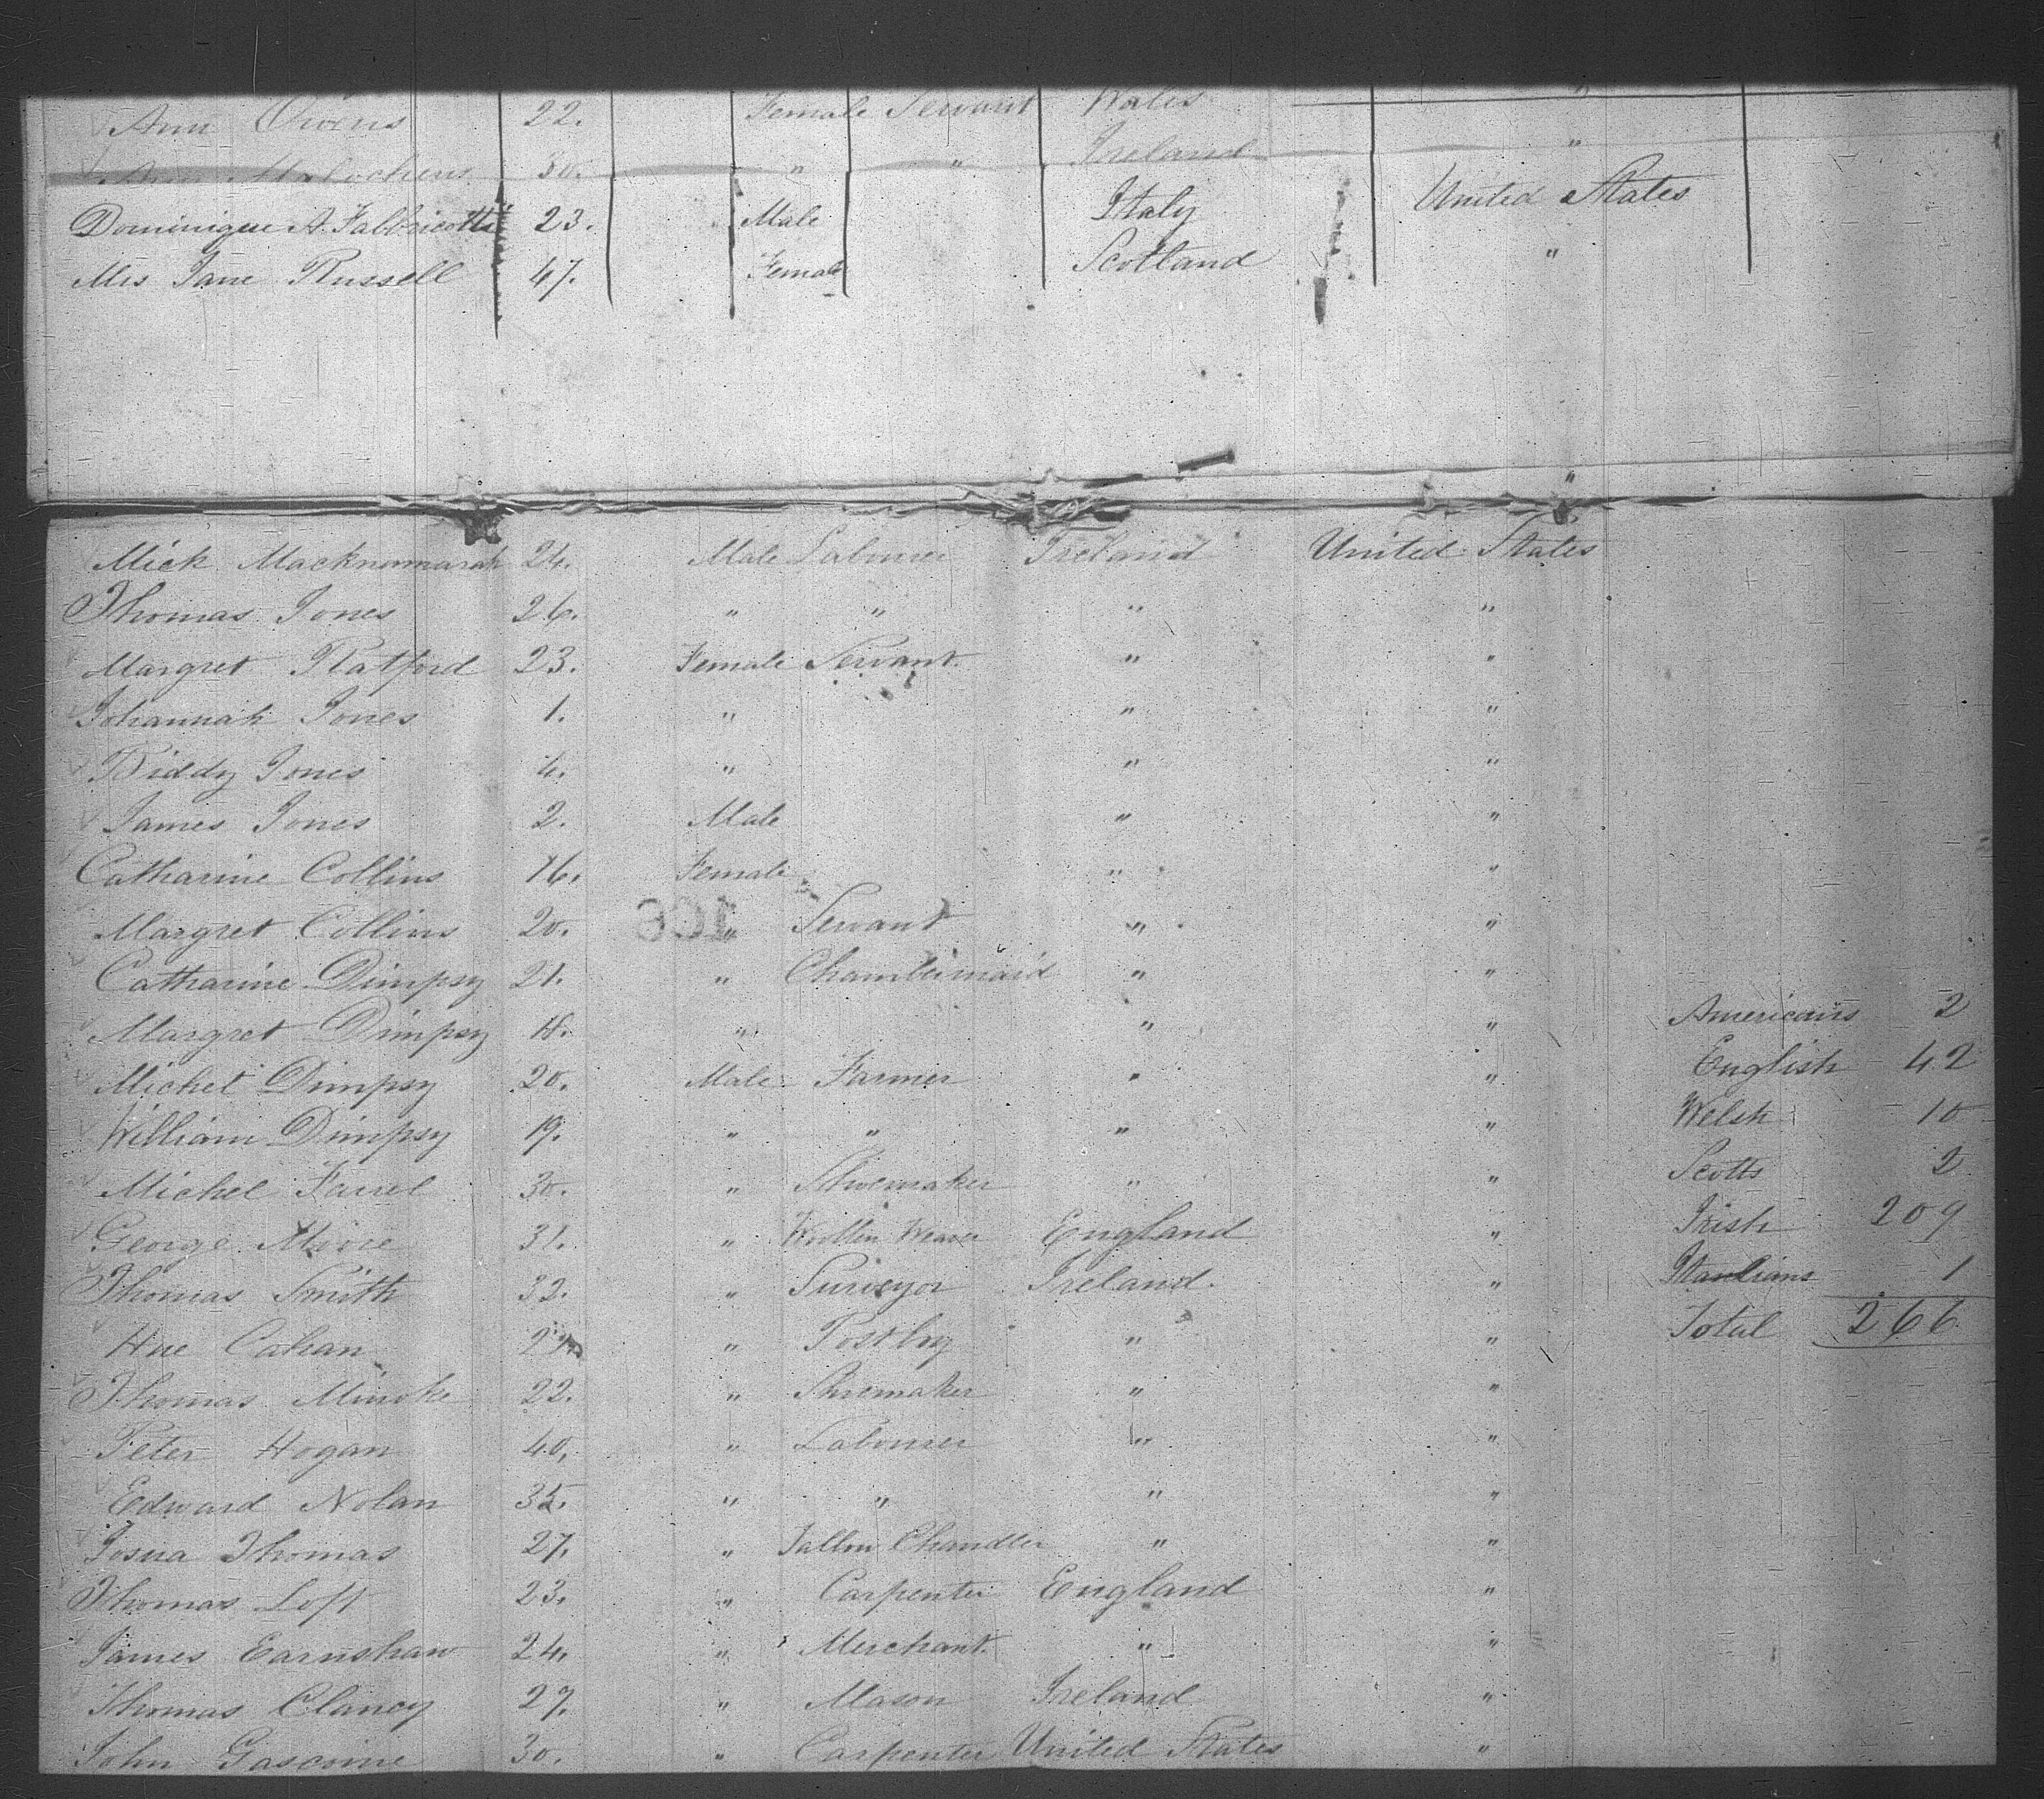 Ann Owens 22. Female Servant Wales "
Ann 30. " " Ireland "
Dominique A. Fabbricotti 23. Male Italy United States
Mrs Jane Russell 47. Female Scotland "
"
Mick Macknamarah 24. Male Labourer Ireland United States
Thomas Jones 26. " " " "
Margret Ratford 23. Female Servant " "
Johannah Jones 1. " " "
Biddy Jones 4. " " "
James Jones 2. Male " "
Catharine Collins 16. Female " "
Margret Collins 20. " Servant " "
Catharine Dimpsy 21. " Chambermaid " "
Margret Dimpsy 18. " " " Americans 2
Michel Dimpsy 20. Male Farmer " " English 42
William Dimpsy 19. " " " " Welsh 10
Michel Farrel 30. " Shoemaker " " Scotts 2
George Moore 31. " Wollin Weaver England " Irish 209
Thomas Smith 32. " Surveyor Ireland. " Itanlians 1
Hue Cahan " Postboy " " Total 266
Thomas 22. " Shoemaker " "
Peter Hogan 40. " Labourer " "
Edward Nolan 35. " " " "
Josua Thomas 27. " Tallow Chandler " "
Thomas Loft 23. " Carpenter England "
James Earnshaw 24. " Merchant. " "
Thomas Clancy 27. " Mason Ireland "
John Gascoine 30. " Carpenter United States "